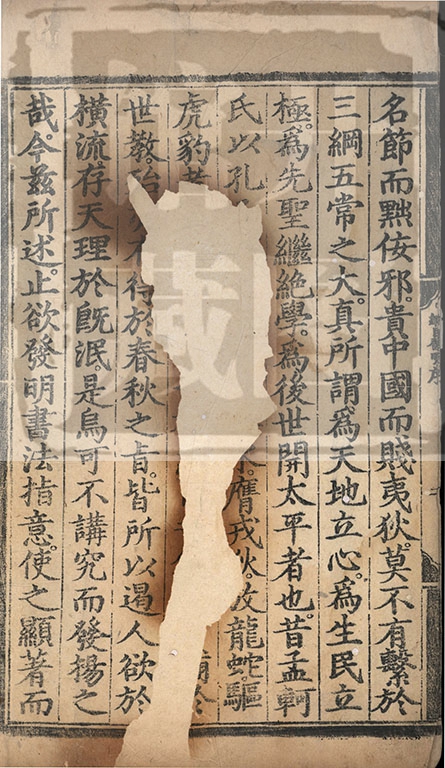 名節而黜佞邪。貴中國而賤夷狄。莫不有繫於
三綱五常之大。真所謂爲天地立心。爲生民立
極。爲先聖繼絶學。爲後世開太平者也。昔孟軻
氏以孔 膺戎狄。放龍蛇。驅
虎豹 於
世教。 不 於春秋之旨。皆所以遏人欲於
橫流。存天理於旣泯。是烏可不講究而發揚之
哉。今茲所述。止欲發明書法指意。使之顯著而